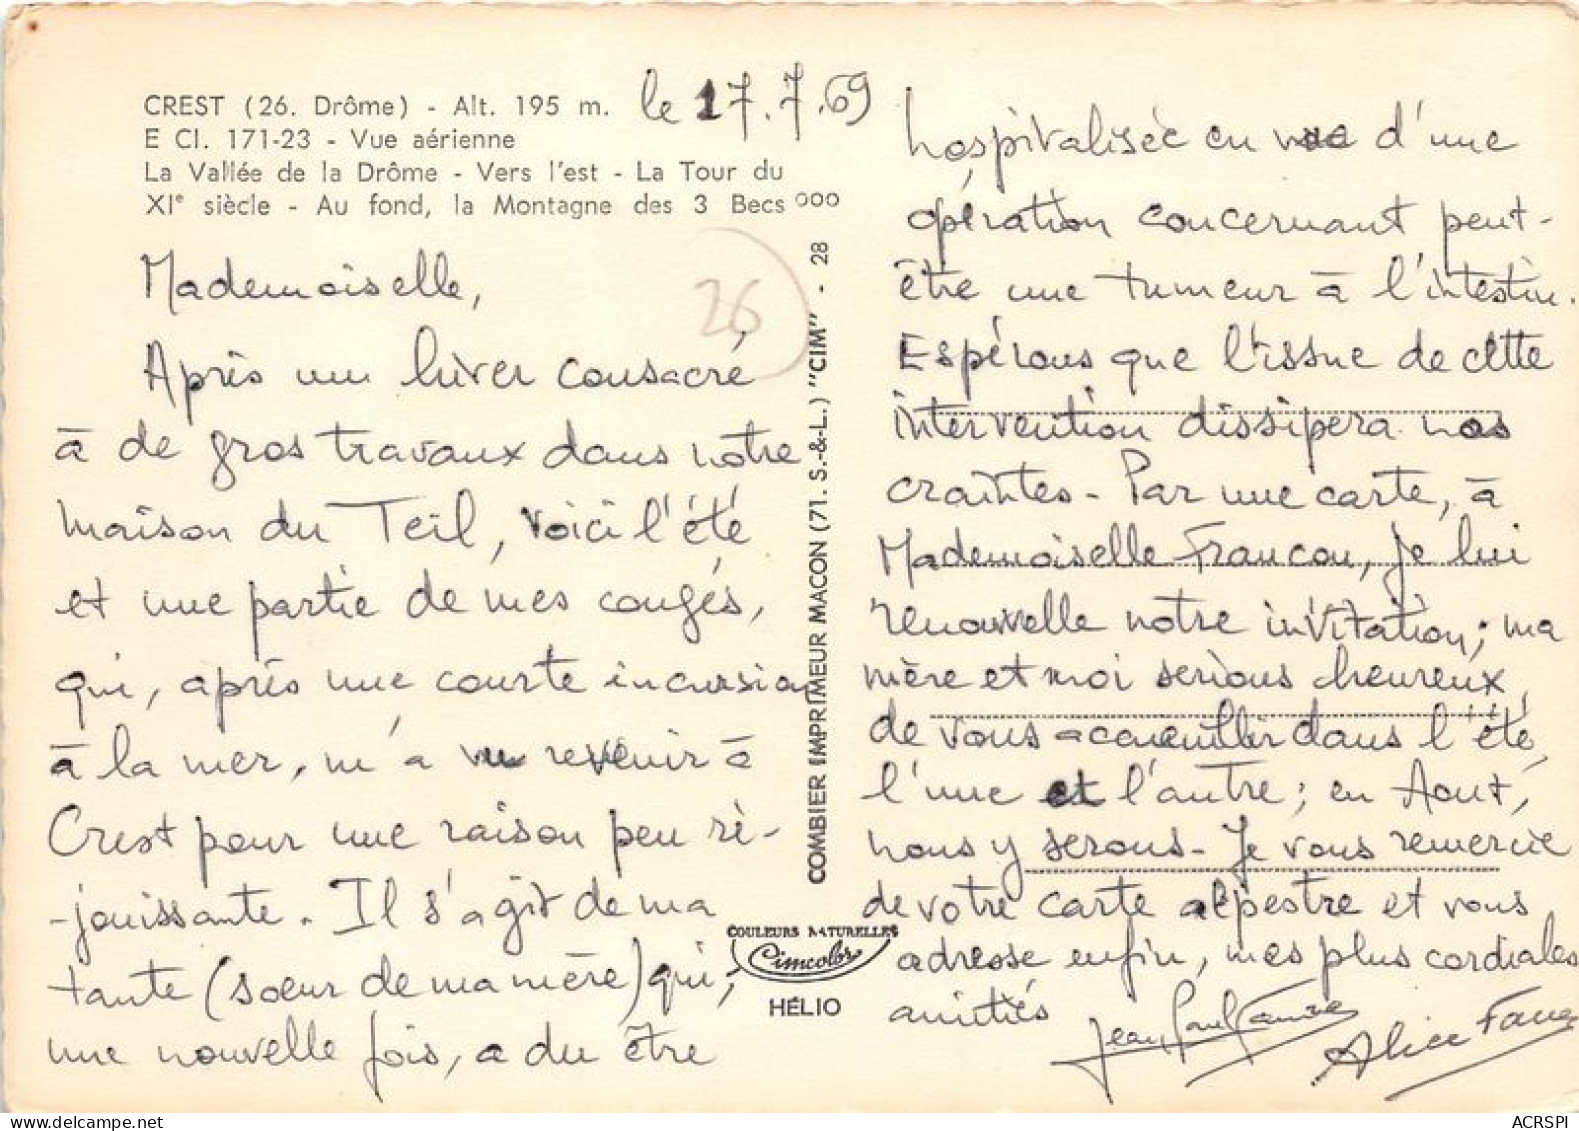 CREST (26. Drôme) - Alt. 195 m.
E CI. 171-23 - Vue aérienne
La Vallée de la Drôme - Vers l'est - La Tour du
XIe siècle - Au fond, la Montagne des 3 Becs °°°
le 17.7.69
26
Mademoiselle,
Après un hiver consacré
à de gros travaux dans notre
maison du Teil, voici l'été
et une partie de mes congés,
qui, après une courte incursion
à la mer, m'a vu revenir à
Crest pour une raison peu ré-
-jouissante. Il s'agit de ma
tante (soeur de ma mère) qui,
une nouvelle fois, a du être
COMBIER IMPRIMEUR MACON (71. S.-&-L.) "CIM" - 28
COULEURS NATURELLES
Cimcolor
HÉLIO
hospitalisée en vue d'une
opération concernant peut-
être une tumeur à l'intestin.
Espérons que l'issue de cette
intervention dissipera nos
craintes - Par une carte, à
Mademoiselle Francon, je lui
renouvelle notre invitation; ma
mère et moi serions heureux
de vous accueillir dans l'été,
l'une et l'autre; en Aout,
nous y serons - Je vous remercie
de votre carte alpestre et vous
adresse enfin, mes plus cordiales
amitiés
Jean Paul Faure
Alice Faure
ACRSPI